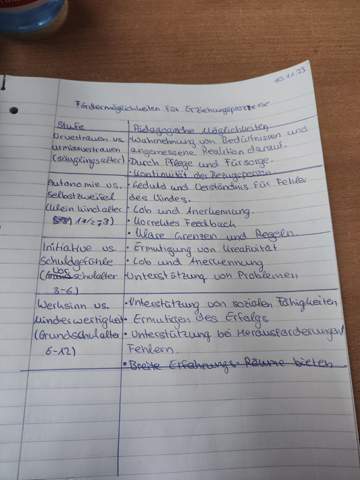 10.11.23
Fördermöglichkeiten für Erziehungsprozesse
Stufe
Pädagogische Möglichkeiten
Urvertrauen vs.
Urmisvertrauen
(Säuglingsalter)
• Wahrnehmung von Bedürfnissen und
angemessene Reaktion darauf.
• Durch Pflege und Fürsorge.
• Kontinuität der Bezugsperson
Autonomie vs.
Selbstzweifel
(Kleinkindalter
1 1/2-3)
• Geduld und Verständnis für Fehler
des Kindes.
• Lob und Anerkennung.
• Korrektes Feedback
• Klare Grenzen und Regeln
Initiative vs.
Schuldgefühle
(Vorschulalter
3-6)
• Ermutigung von Kreativität
• Lob und Anerkennung
Unterstützung von Problemen
Werksinn vs.
Minderwertigkeit
(Grundschulalter
6-12)
• Unterstützung von sozialen Fähigkeiten
• Ermutigen des Erfolgs
• Unterstützung bei Herausforderungen/
Fehlern.
• Breite Erfahrungs Räume bieten